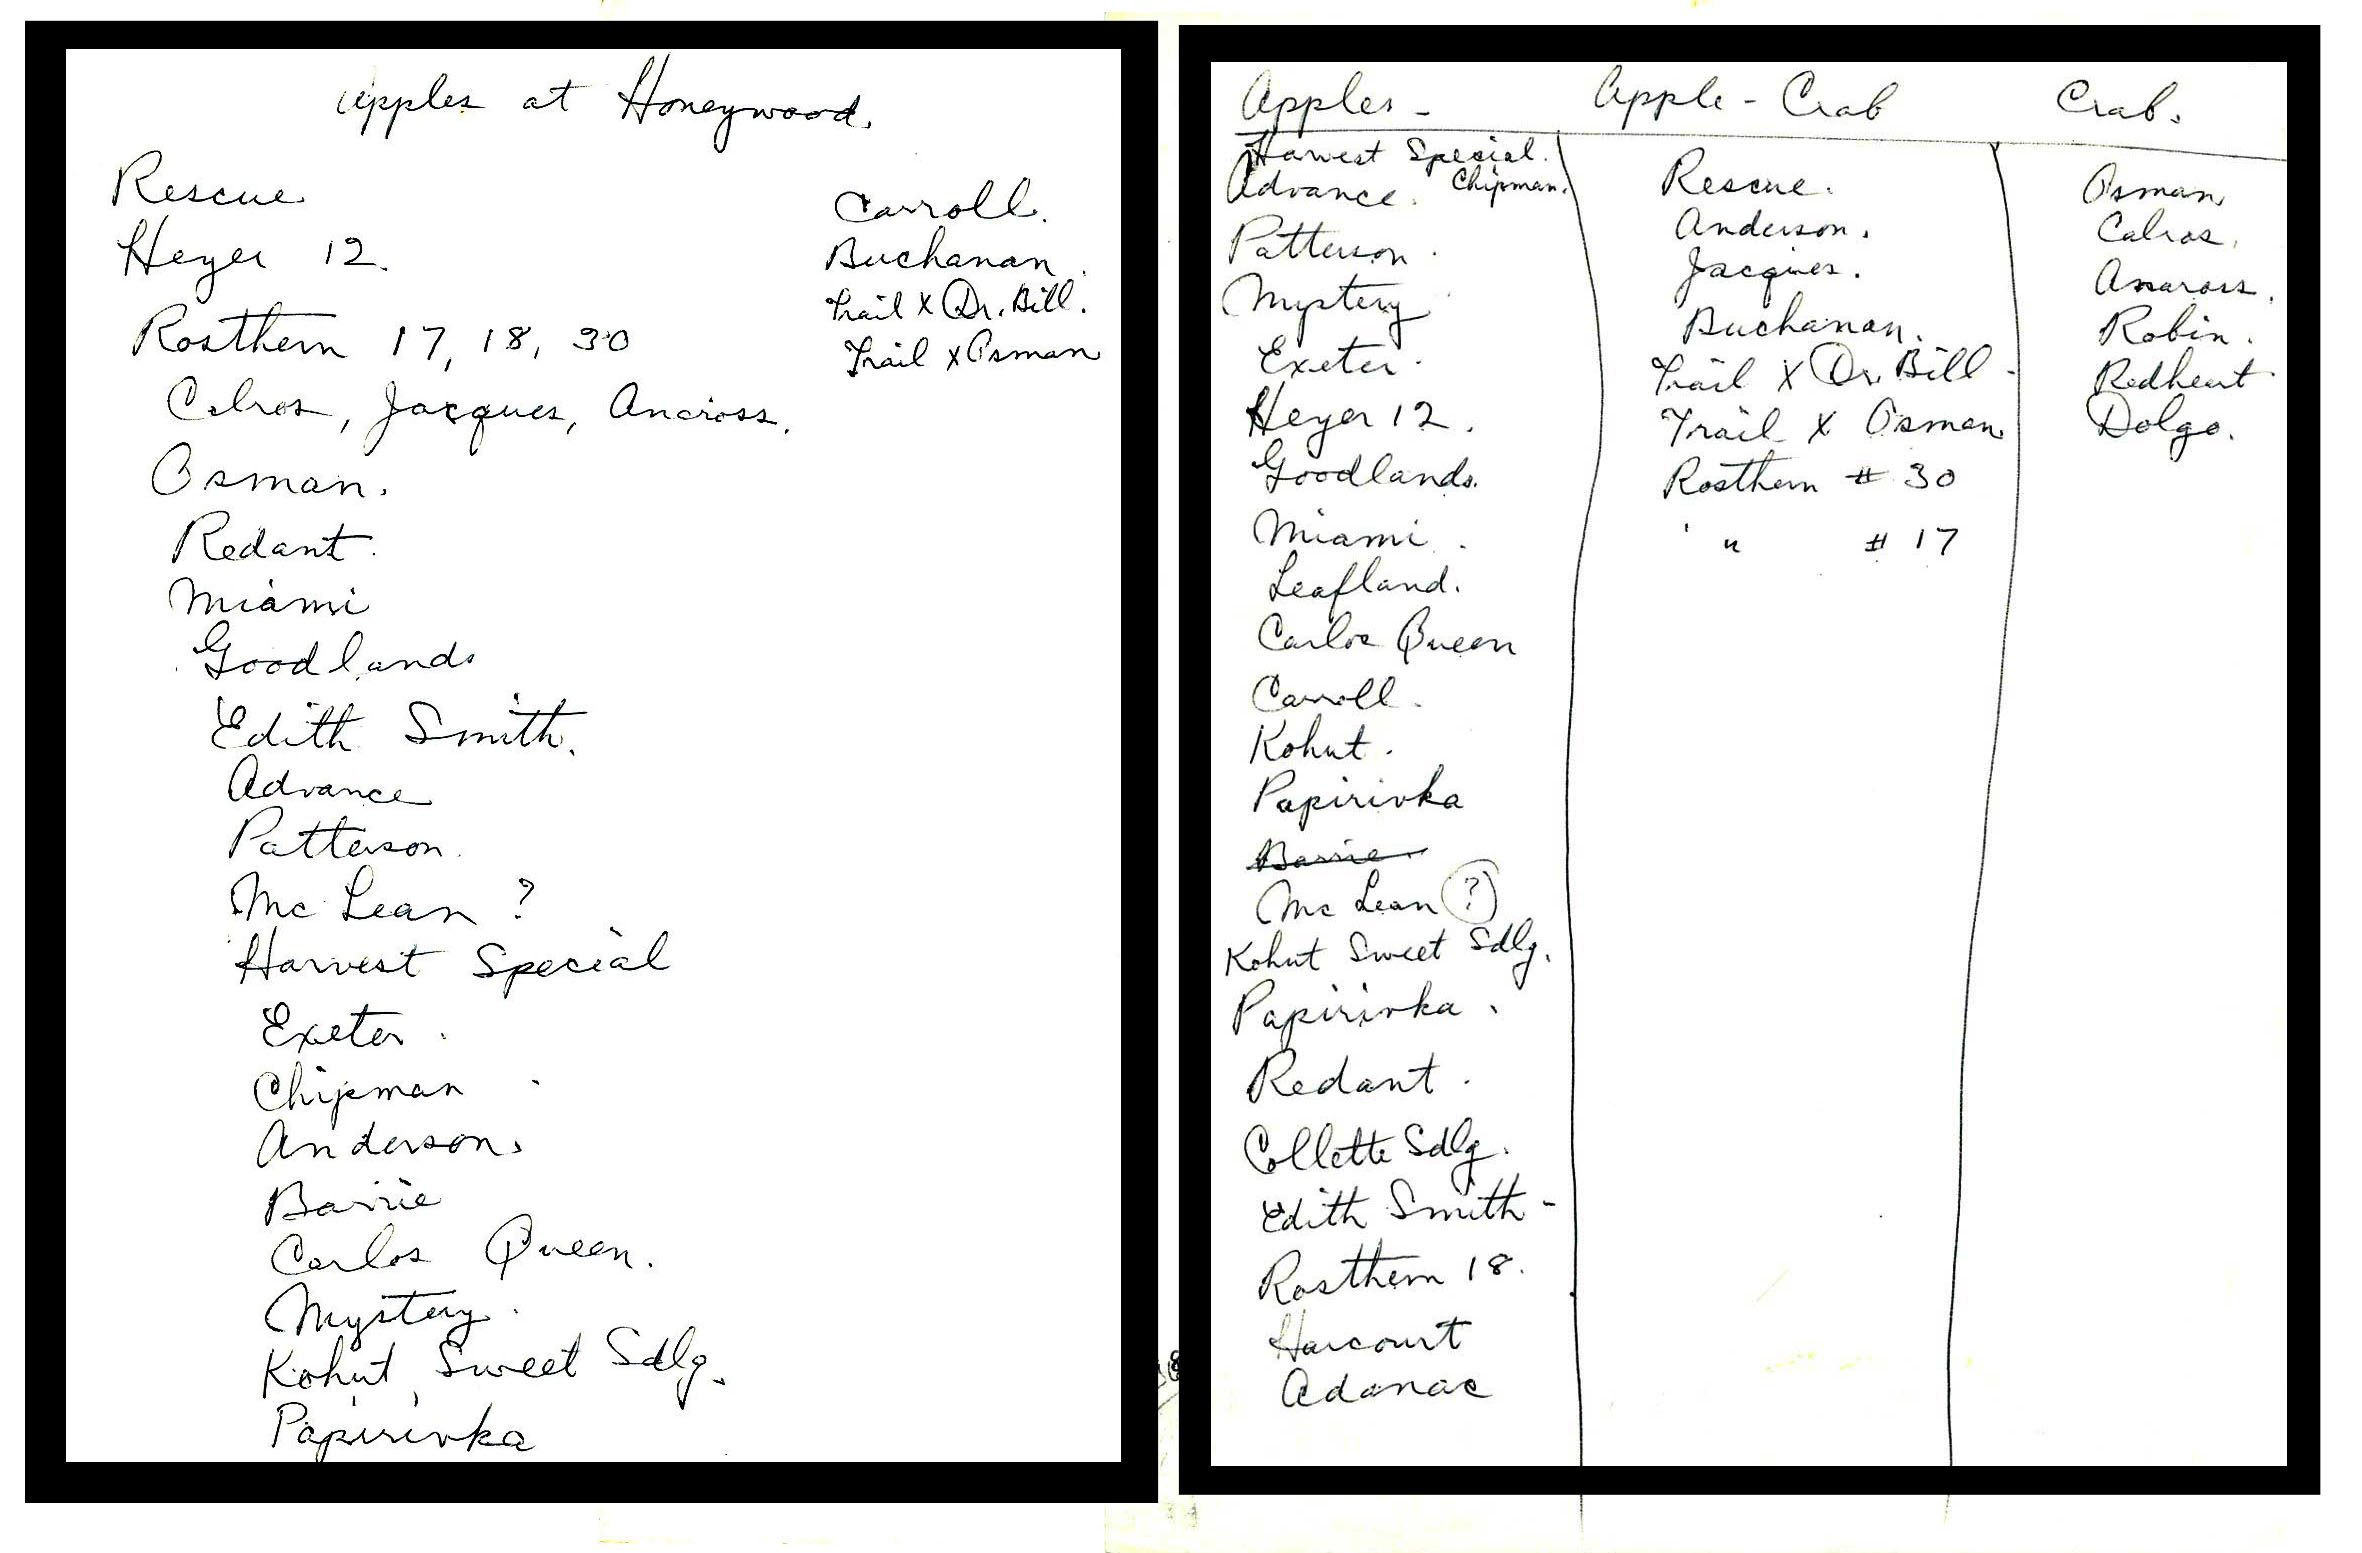 Apples at Honeywood.
Rescue
Heyer 12.
Rosthern 17, 18, 30
Calros, Jacques, Anaross.
Osman.
Redant.
Miami
Goodlands
Edith Smith.
Advance
Patterson.
Mc Lean ?
Harvest Special
Exeter.
Chipman
Anderson.
Barrie
Carlos Queen.
Mystery.
Kohut, Sweet Sdlg.
Papirivka
Carroll.
Buchanan.
Trail X Dr. Bill.
Trail X Osman
Apples -
Harvest Special.
Advance. Chipman.
Patterson.
Mystery
Exeter.
Heyer 12.
Goodlands.
Miami.
Leafland.
Carlos Queen
Carroll.
Kohut.
Papirivka
Barrie
Mc Lean ?
Kohut Sweet Sdlg.
Papirivka.
Redant.
Collette Sdlg.
Edith Smith -
Rosthern 18.
Harcourt
Adanac
Apple - Crab
Rescue.
Anderson.
Jacques.
Buchanan.
Trail X Dr. Bill -
Trail X Osman
Rosthern # 30
" # 17
Crab.
Osman
Calros.
Anaross.
Robin.
Redheart
Dolgo.